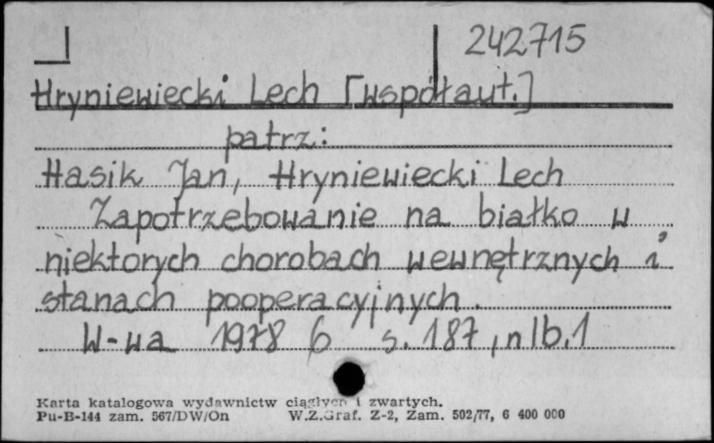 242715
Hryniewiecki Lech [współaut.]
patrz:
Hasik Jan, Hryniewiecki Lech
Zapotrzebowanie na białko w
niektorych chorobach wewnętrznych i
stanach pooperacyjnych.
W-wa 1978 6 s. 187, nlb. 1
Karta katalogowa wydawnictw ciągłych i zwartych.
Pu-B-144 zam. 567/DW/On W.Z.Graf. Z-2, Zam. 502/77, 6 400 000